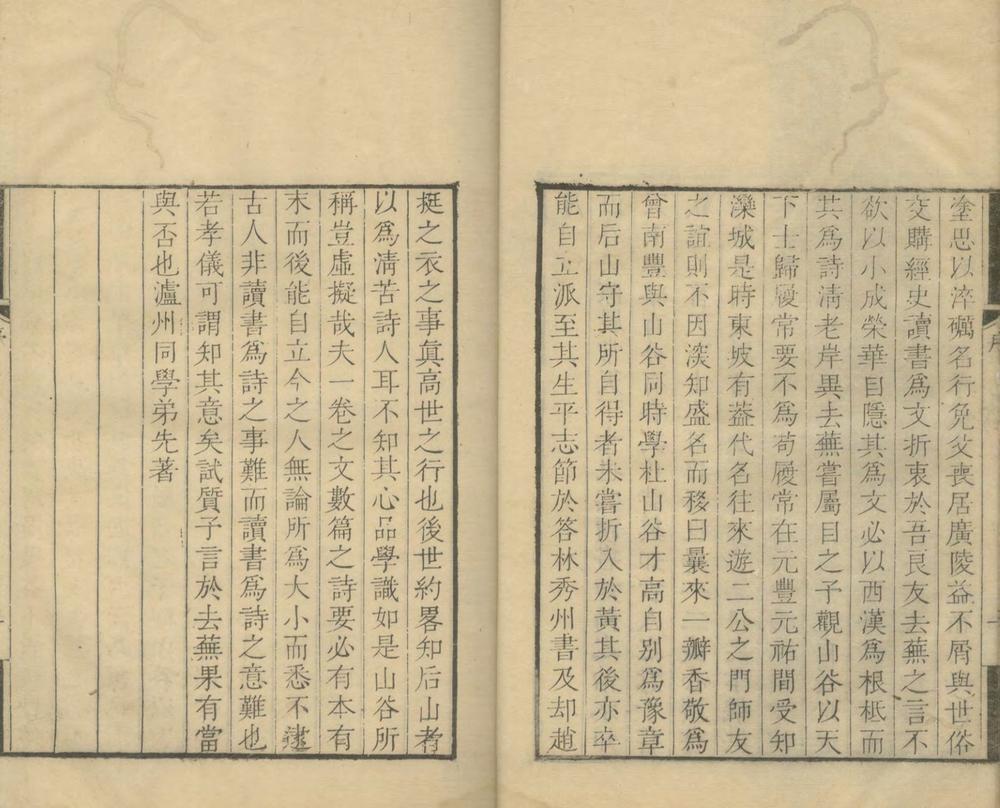 塗思以淬礪名行免父喪居廣陵益不屑與世俗
交購經史讀書爲文折衷於吾良友去蕪之言不
欲以小成榮華自隱其爲文必以西漢爲根柢而
其爲詩清老岸異去蕪嘗屬目之子觀山谷以天
下士歸履常要不爲苟履常在元豐元祐間受知
灤城是時東坡有葢代名往來遊二公之門師友
之誼則不因淡知盛名而移曰曩來一瓣香敬爲
曾南豐與山谷同時學杜山谷才高自別爲豫章
而后山守其所自得者未嘗折入於黃其後亦卒
能自立派至其生平志節於答林秀州書及却趙
挺之衣之事眞高世之行也後世約畧知后山者
以爲淸苦詩人耳不知其心品學識如是山谷所
稱豈虛擬哉夫一卷之文數篇之詩要必有本有
末而後能自立今之人無論所爲大小而悉不逮
古人非讀書爲詩之事難而讀書爲詩之意難也
若孝儀可謂知其意矣試質子言於去蕪果有當
與否也瀘州同學弟先著